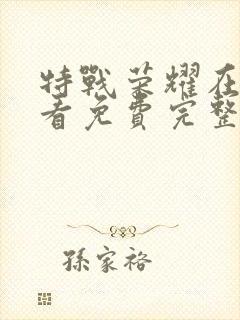 特戰榮耀在
看免費完整
孫家裕